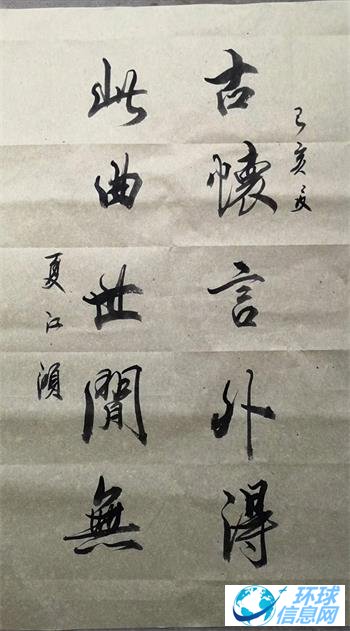 己亥夏
古懷言外得
此曲世間無
夏江湏
环球
信息网